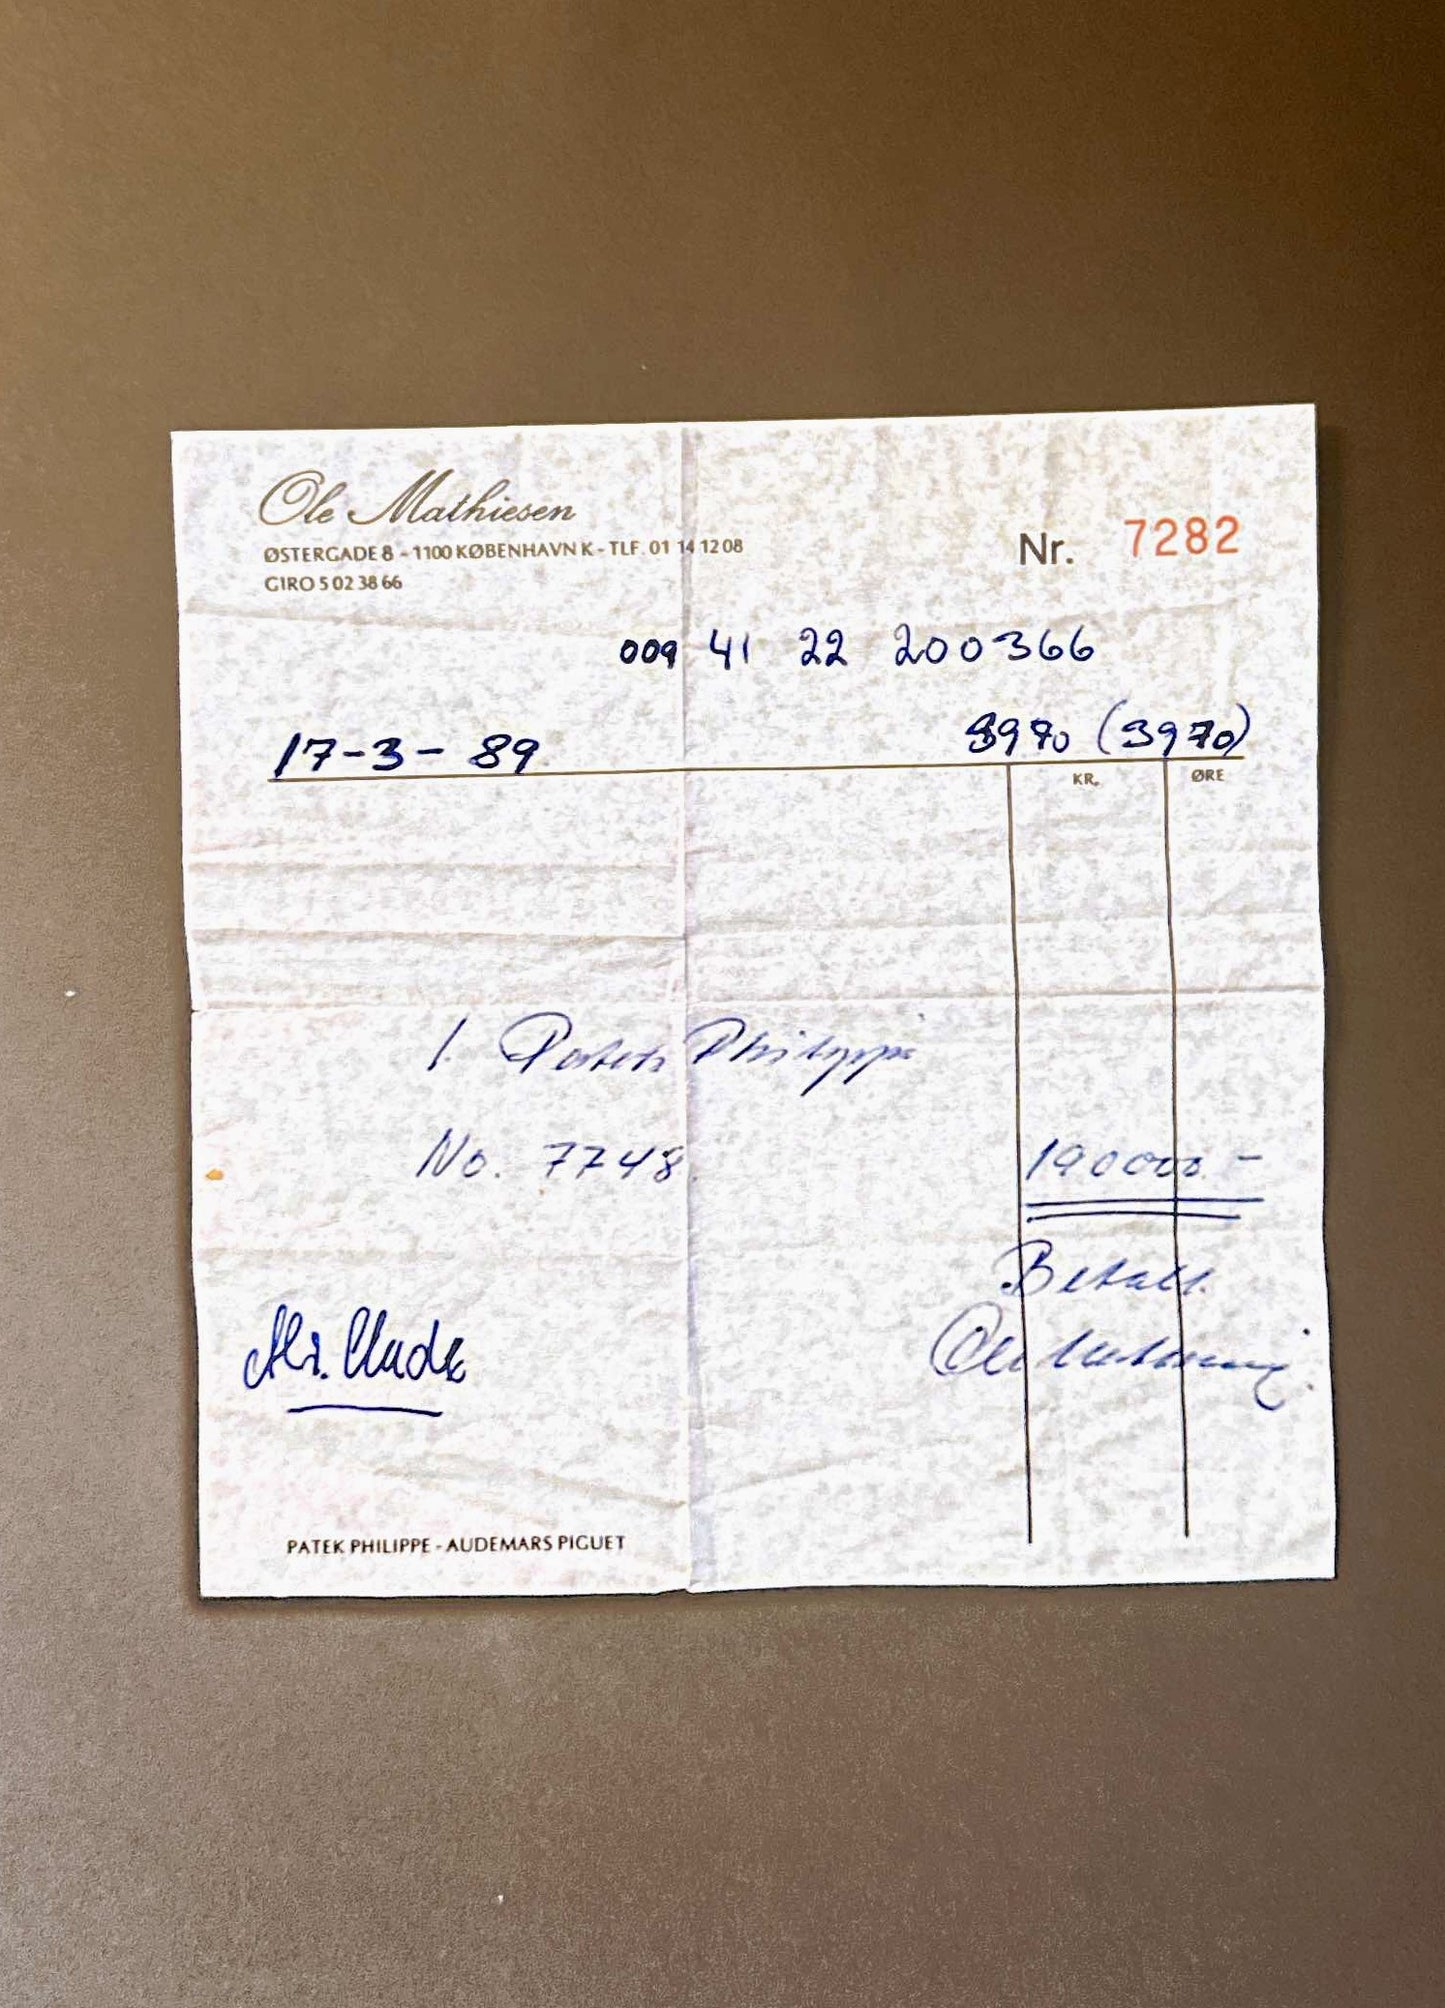 Ole Mathiesen
ØSTERGADE 8 - 1100 KØBENHAVN K - TLF. 01 14 12 08
GIRO 5 02 38 66
Nr. 7282
009 41 22 200366
17-3-89
3970 (3970)
KR. ØRE
1. Patek Philippe
No. 7748
190000.-
Betalt.
Ole Mathiesen
PATEK PHILIPPE - AUDEMARS PIGUET